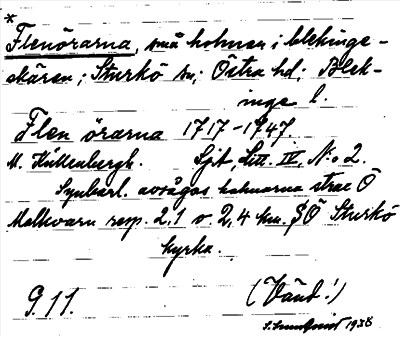 *
Flenörarna, små holmar i blekinge-
skären; Sturkö sn; Östra hd; Blek-
inge l.
Flen örarna 1717-1747.
M. Kullenbergh. Sjk, Litt. IV, N:o 2.
Synbarl. avsågos holmarna strax Ö
Malkvarn resp. 2,1 o. 2,4 km. SÖ Sturkö
kyrka.
9.11. (Vänd!)
S. Sundquist 1938